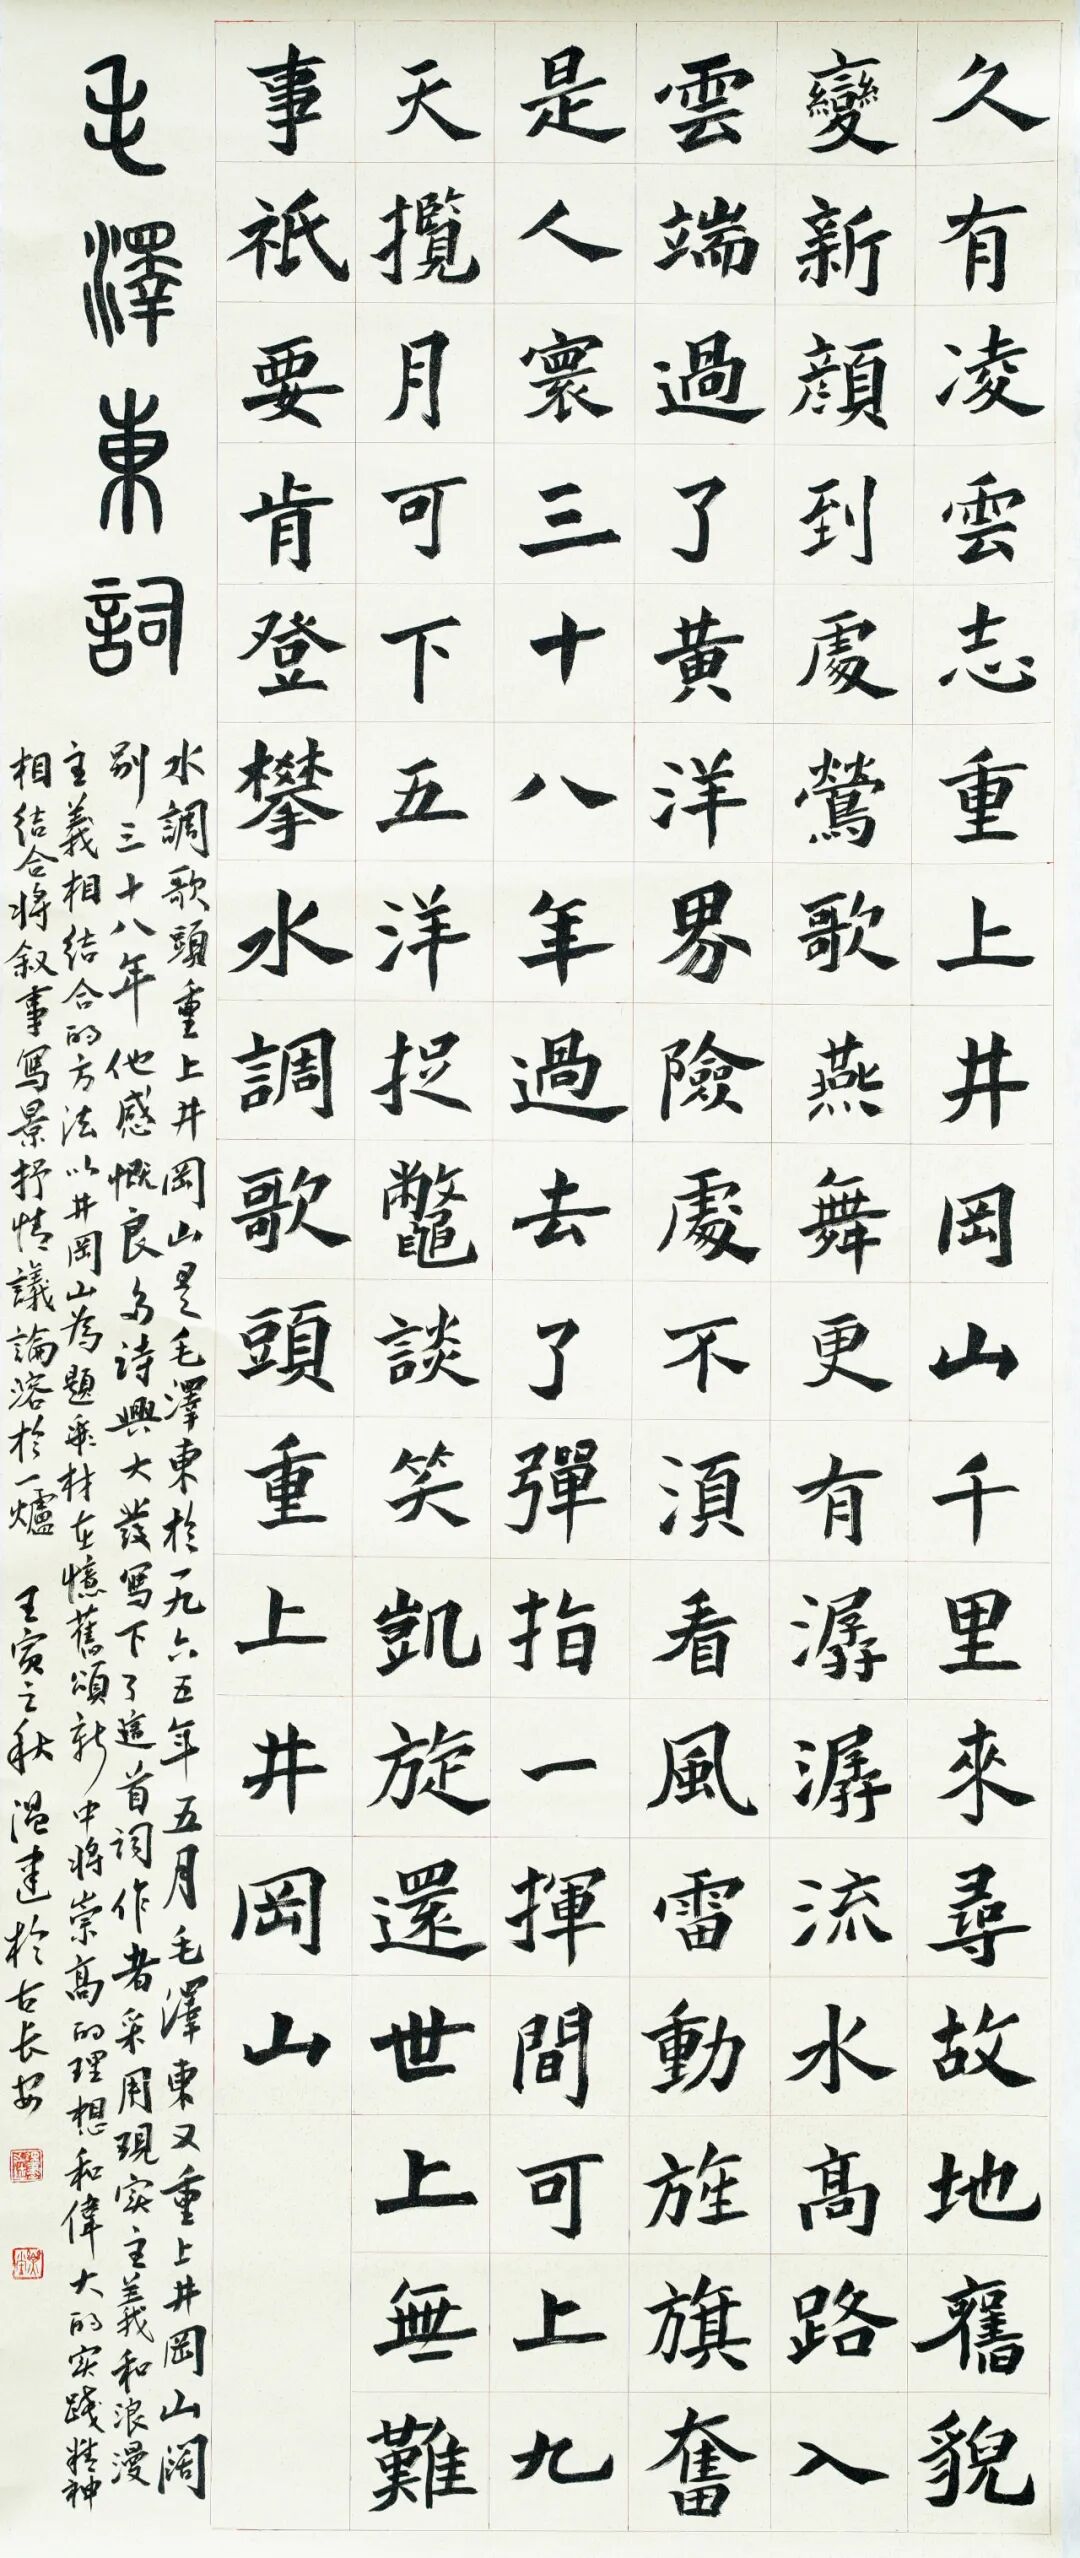 久有凌雲志重上井岡山千里來尋故地舊貌
變新顔到處鶯歌燕舞更有潺潺流水高路入
雲端過了黄洋界險處不須看風雷動旌旗奮
是人寰三十八年過去了彈指一揮間可上九
天攬月可下五洋捉鼈談笑凱旋還世上無難
事祇要肯登攀水調歌頭重上井岡山
毛澤東詞
水調歌頭重上井岡山是毛澤東於一九六五年五月毛澤東又重上井岡山闊
别三十八年他感慨良多詩興大發寫下了這首詞作者采用現实主義和浪漫
主義相结合的方法以井岡山為題材在憶舊頌新中将崇高的理想和偉大的实践精神
相结合将叙事寫景抒情議論溶於一爐壬寅之秋温建於古長安